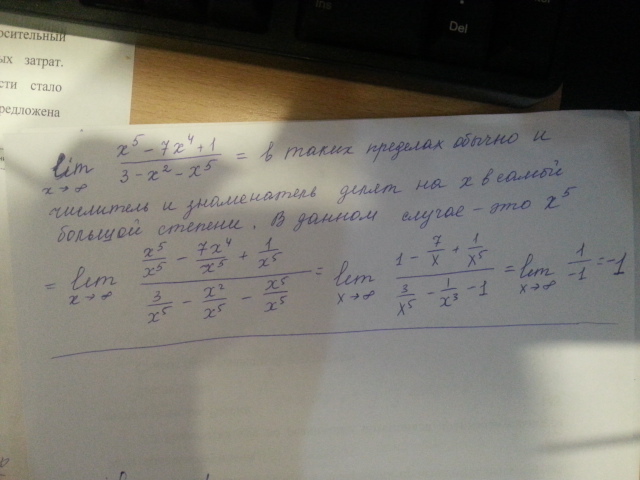 ых затрат.
сти стало
редложена
Ins
Del
lim x→∞ (x⁵ - 7x⁴ + 1)/(3 - x² - x⁵) = в таких пределах обычно и
числитель и знаменатель делят на x в самой
большой степени. В данном случае - это x⁵
= lim x→∞ (x⁵/x⁵ - 7x⁴/x⁵ + 1/x⁵)/(3/x⁵ - x²/x⁵ - x⁵/x⁵) = lim x→∞ (1 - 7/x + 1/x⁵)/(3/x⁵ - 1/x³ - 1) = lim x→∞ 1/-1 = -1